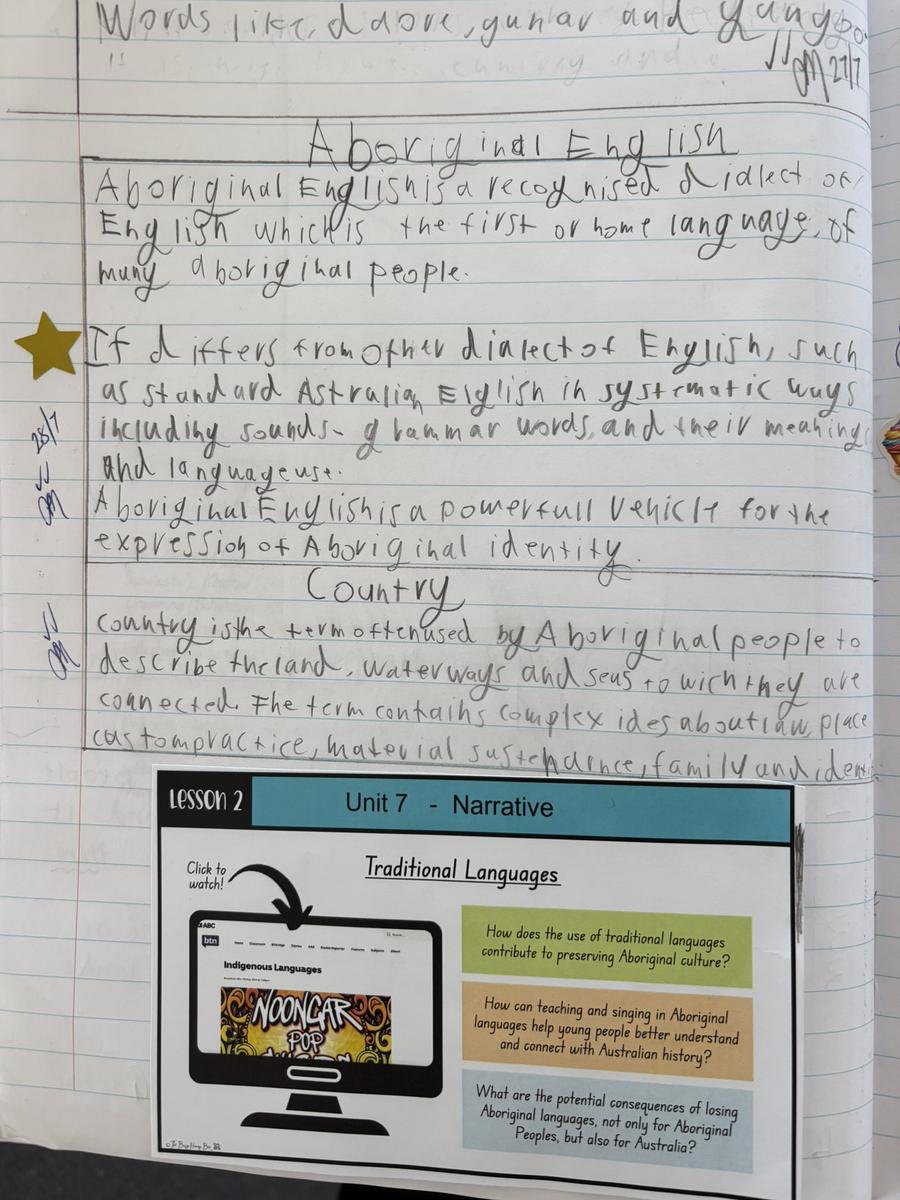 Words like, daore, gunar and yungbo.
27/7
Aboriginal English
Aboriginal English is a recognised dialect of
English which is the first or home language, of
many aboriginal people.
If differs from other dialect of English, such
as standard Astralian Elglish in systematic ways
including sounds- grammar words, and their meaning
and language use.
28/7
Aboriginal English is a powerfull vehicle for the
expression of Aboriginal identity.
Country
country is the term often used by Aboriginal people to
describe the land, waterways and seas to wich they are
connected. The term contains complex ides about law, place
castom practice, material sustendrnce, family and identi
Lesson 2
Unit 7 - Narrative
Traditional Languages
Click to
watch!
ABC
btn
Indigenous Languages
NOONGAR
POP
How does the use of traditional languages
contribute to preserving Aboriginal culture?
How can teaching and singing in Aboriginal
languages help young people better understand
and connect with Australian history?
What are the potential consequences of losing
Aboriginal languages, not only for Aboriginal
Peoples, but also for Australia?